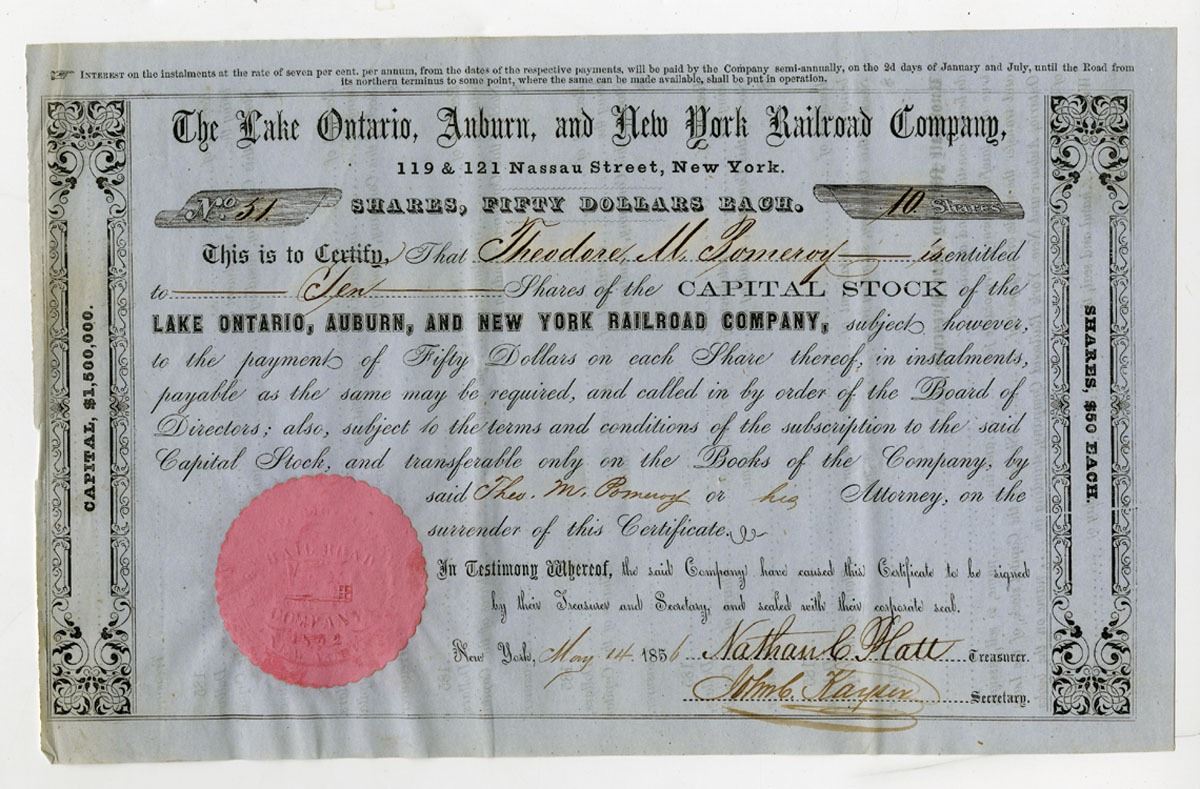 INTEREST on the instalments at the rate of seven per cent. per annum, from the dates of the respective payments, will be paid by the Company semi-annually, on the 2d days of January and July, until the Road from
its northern terminus to some point, where the same can be made available, shall be put in operation.
The Lake Ontario, Auburn, and New York Railroad Company,
119 & 121 Nassau Street, New York.
No. 51
SHARES, FIFTY DOLLARS EACH.
10 Shares
This is to Certify, That Theodore M. Pomeroy is entitled
to Ten Shares of the CAPITAL STOCK of the
LAKE ONTARIO, AUBURN, AND NEW YORK RAILROAD COMPANY, subject however,
to the payment of Fifty Dollars on each Share thereof, in instalments,
payable as the same may be required, and called in by order of the Board of
Directors; also, subject to the terms and conditions of the subscription to the said
Capital Stock, and transferable only on the Books of the Company, by
said Theo. M. Pomeroy or his Attorney, on the
surrender of this Certificate.
In Testimony Whereof, the said Company have caused this Certificate to be signed
by their Treasurer and Secretary, and sealed with their corporate seal.
New York, May 14 1856 Nathan C Platt Treasurer.
John C. Kayser Secretary.
CAPITAL, $1,500,000.
SHARES, $50 EACH.
RAIL ROAD
COMPANY
1852